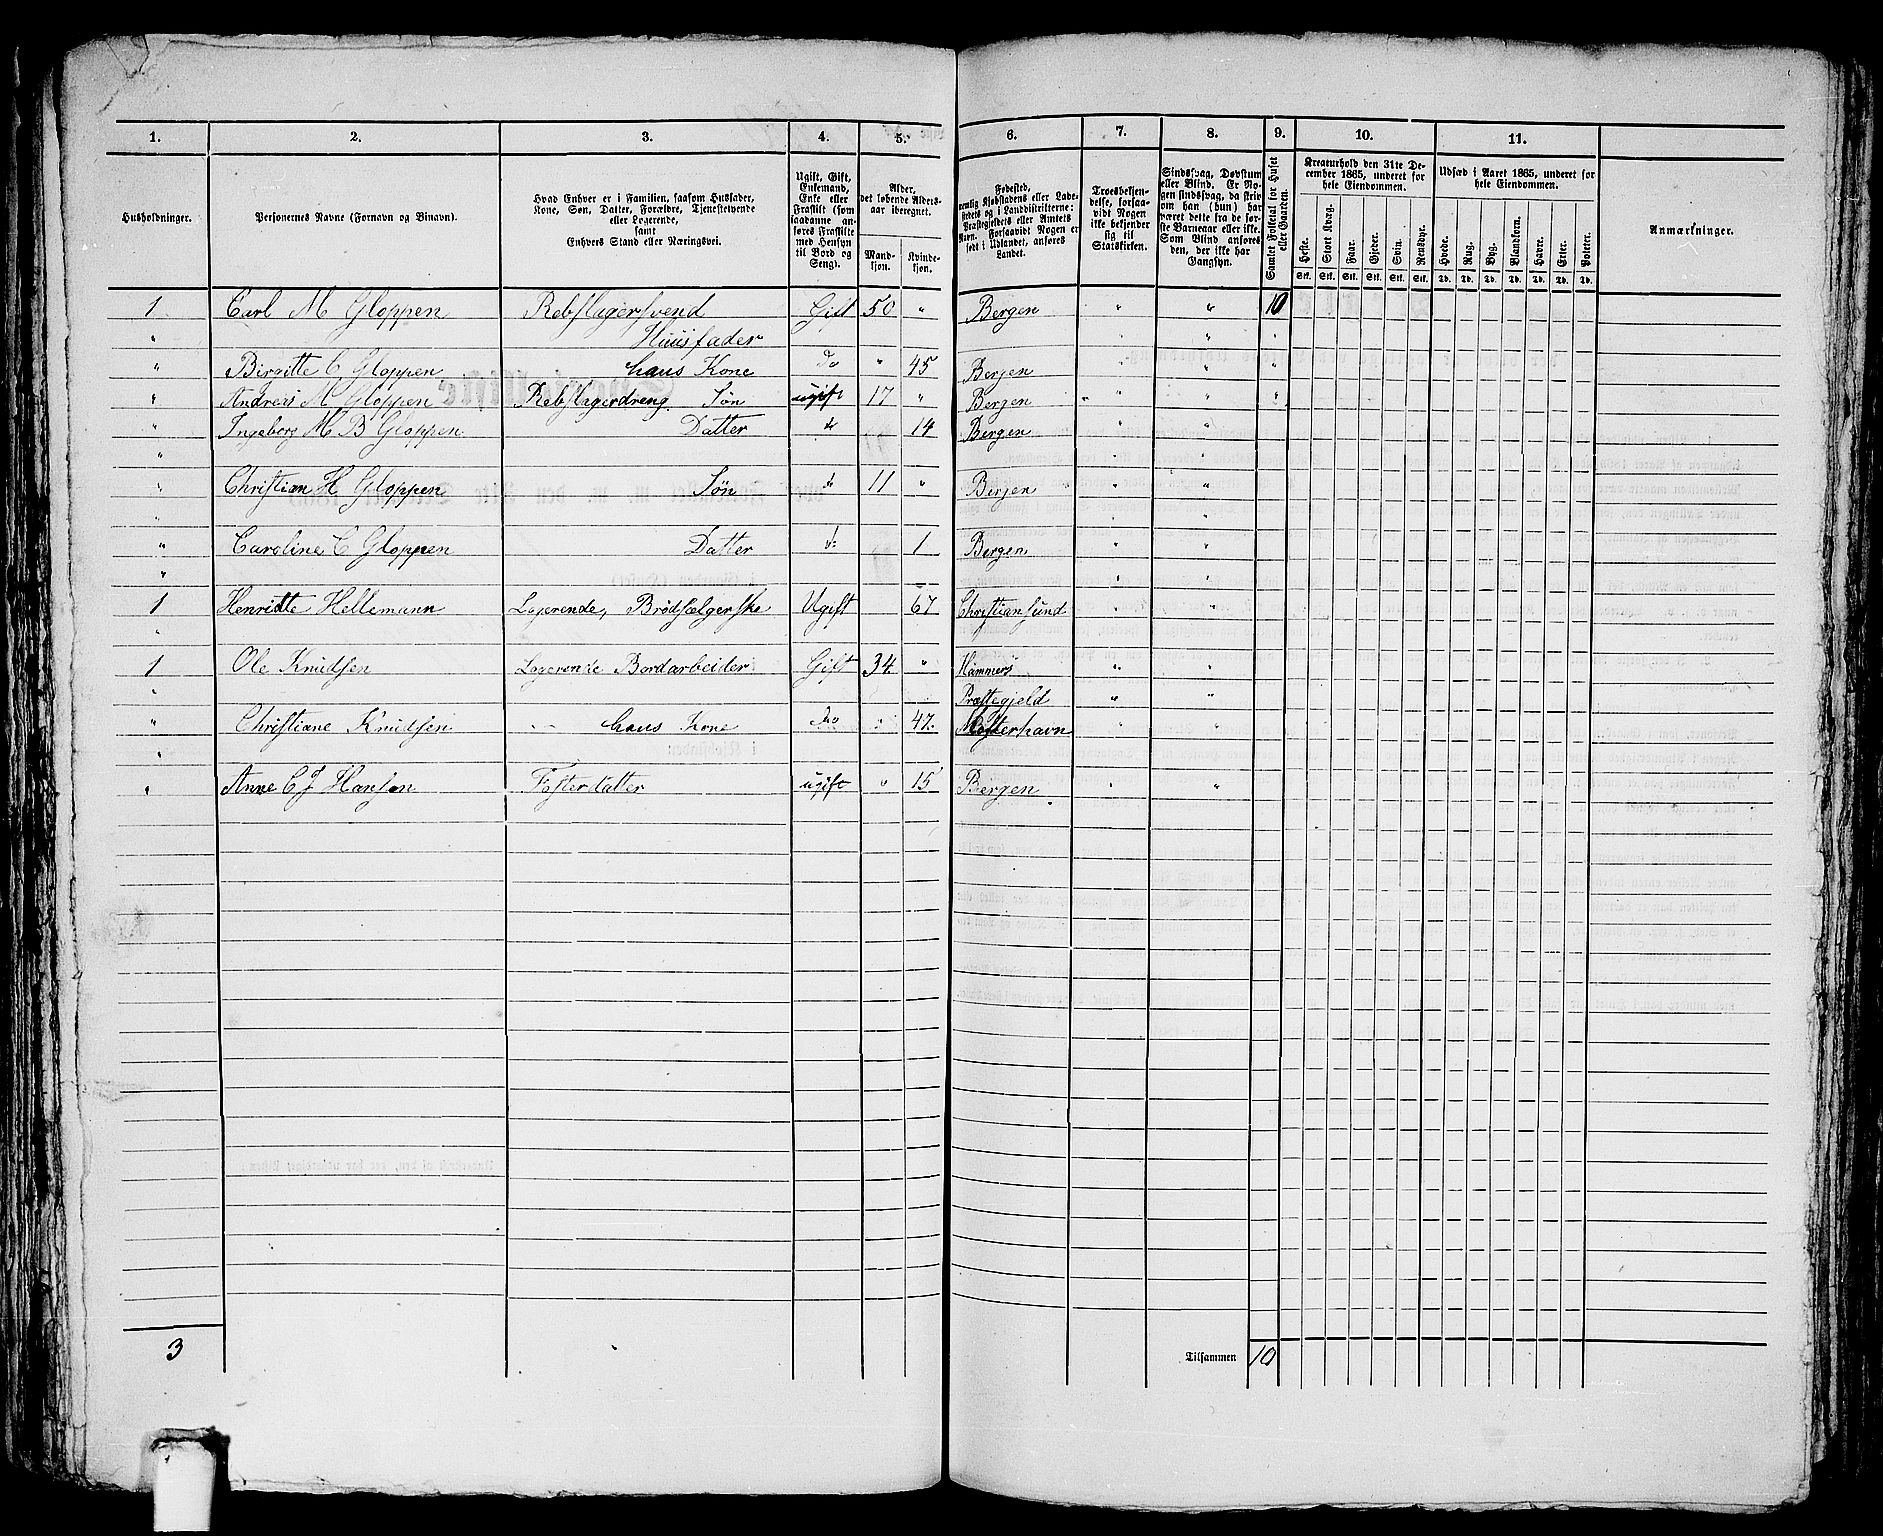 1. 2. 3. 4. 5. 6. 7. 8. 9. 10. 11.
Husholdninger.
Personernes Navne (Fornavn og Binavn).
Hvad Enhver er i Familien, saasom Husfader,
Kone, Søn, Datter, Forældre, Tjenestetyende
eller Logerende,
samt
Enhvers Stand eller Næringsvei.
Ugift, Gift,
Enkemand,
Enke eller
Fraskilt (som
saadanne an-
føres Fraskilte
med Hensyn
til Bord og
Seng).
Alder,
det løbende Alders-
aar iberegnet.
Mand-
kjøn.
Kvinde-
kjøn.
Fødested,
nemlig Kjøbstadens eller Lade-
stedets og i Landdistrikterne:
Præstegjeldets eller Amtets
Navn. Forsaavidt Nogen er
født i Udlandet, anføres
Landet.
Troesbekjen-
delse, forsaa-
vidt Nogen
ikke bekjender
sig til
Statskirken.
Sindssvag, Døvstum
eller Blind. Er No-
gen sindssvag, da skriv
om han (hun) har
været dette fra de før-
ste Barneaar eller ikke.
Som Blind anføres
den, der ikke har
Gangsyn.
Samlet Folketal for Huset
eller Gaarden.
Kreaturhold den 31te De-
cember 1865, underet for
hele Eiendommen.
Heste. Stort Kvæg. Faar. Gjeder. Svin. Rensdyr.
Stk. Stk. Stk. Stk. Stk. Stk.
Udsæd i Aaret 1865, underet for
hele Eiendommen.
Hvede. Rug. Byg. Blandkorn. Havre. Erter. Poteter.
Td. Td. Td. Td. Td. Td. Td.
Anmærkninger.
1 Carl M Gloppen Rebslagersvend Gift 50 " Bergen " " 10
" Huusfader " "
" Birgitte C Gloppen hans Kone do " 45 Bergen " " "
" Andreas M Gloppen Rebslagerdreng Søn ugift 17 " Bergen " " "
" Ingeborg M B Gloppen Datter do 14 Bergen " "
" " "
" Christian H Gloppen Søn do 11 " Bergen " "
" " "
" Caroline C Gloppen Datter do 1 Bergen " "
" " "
1 Henriette Hellemann Logerende, Brødsælgerske Ugift 67 Christiansund " "
"
1 Ole Knudsen Logerende Bordarbeider Gift 34 " Hammers " "
" Præstegjeld " "
" Christiane Knudsen hans Kone do " 47. Mosterhavn " "
"
" Anne C J Hansen Fosterdatter ugift " 15 Bergen " "
3 Tilsammen 10